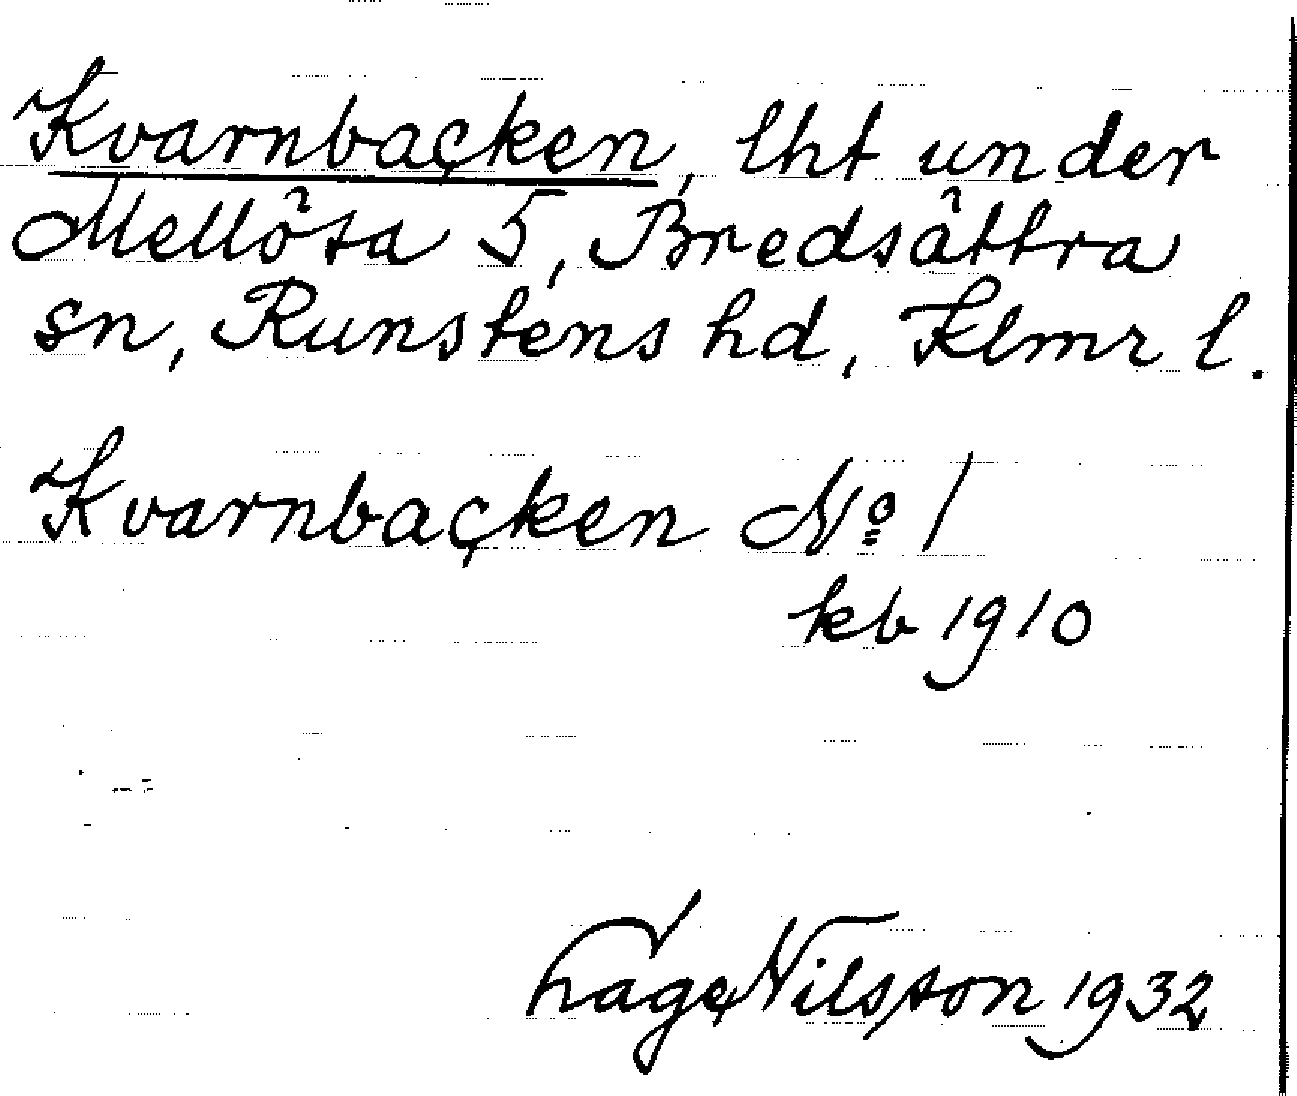 Kvarnbacken, lht under
Mellösa 5, Bredsättra
sn, Runstens hd, Klmr l.
Kvarnbacken No 1
kb 1910
Tage Nilsson 1932